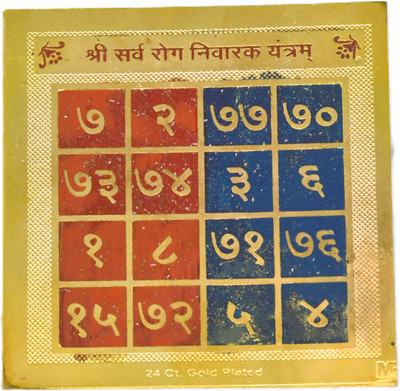 श्री सर्व रोग निवारक यंत्रम्
७ २ ७७ ७०
७३ ७४ ३ ६
१ ८ ७१ ७६
१५ ७२ ५ ४
24 Ct. Gold Plated